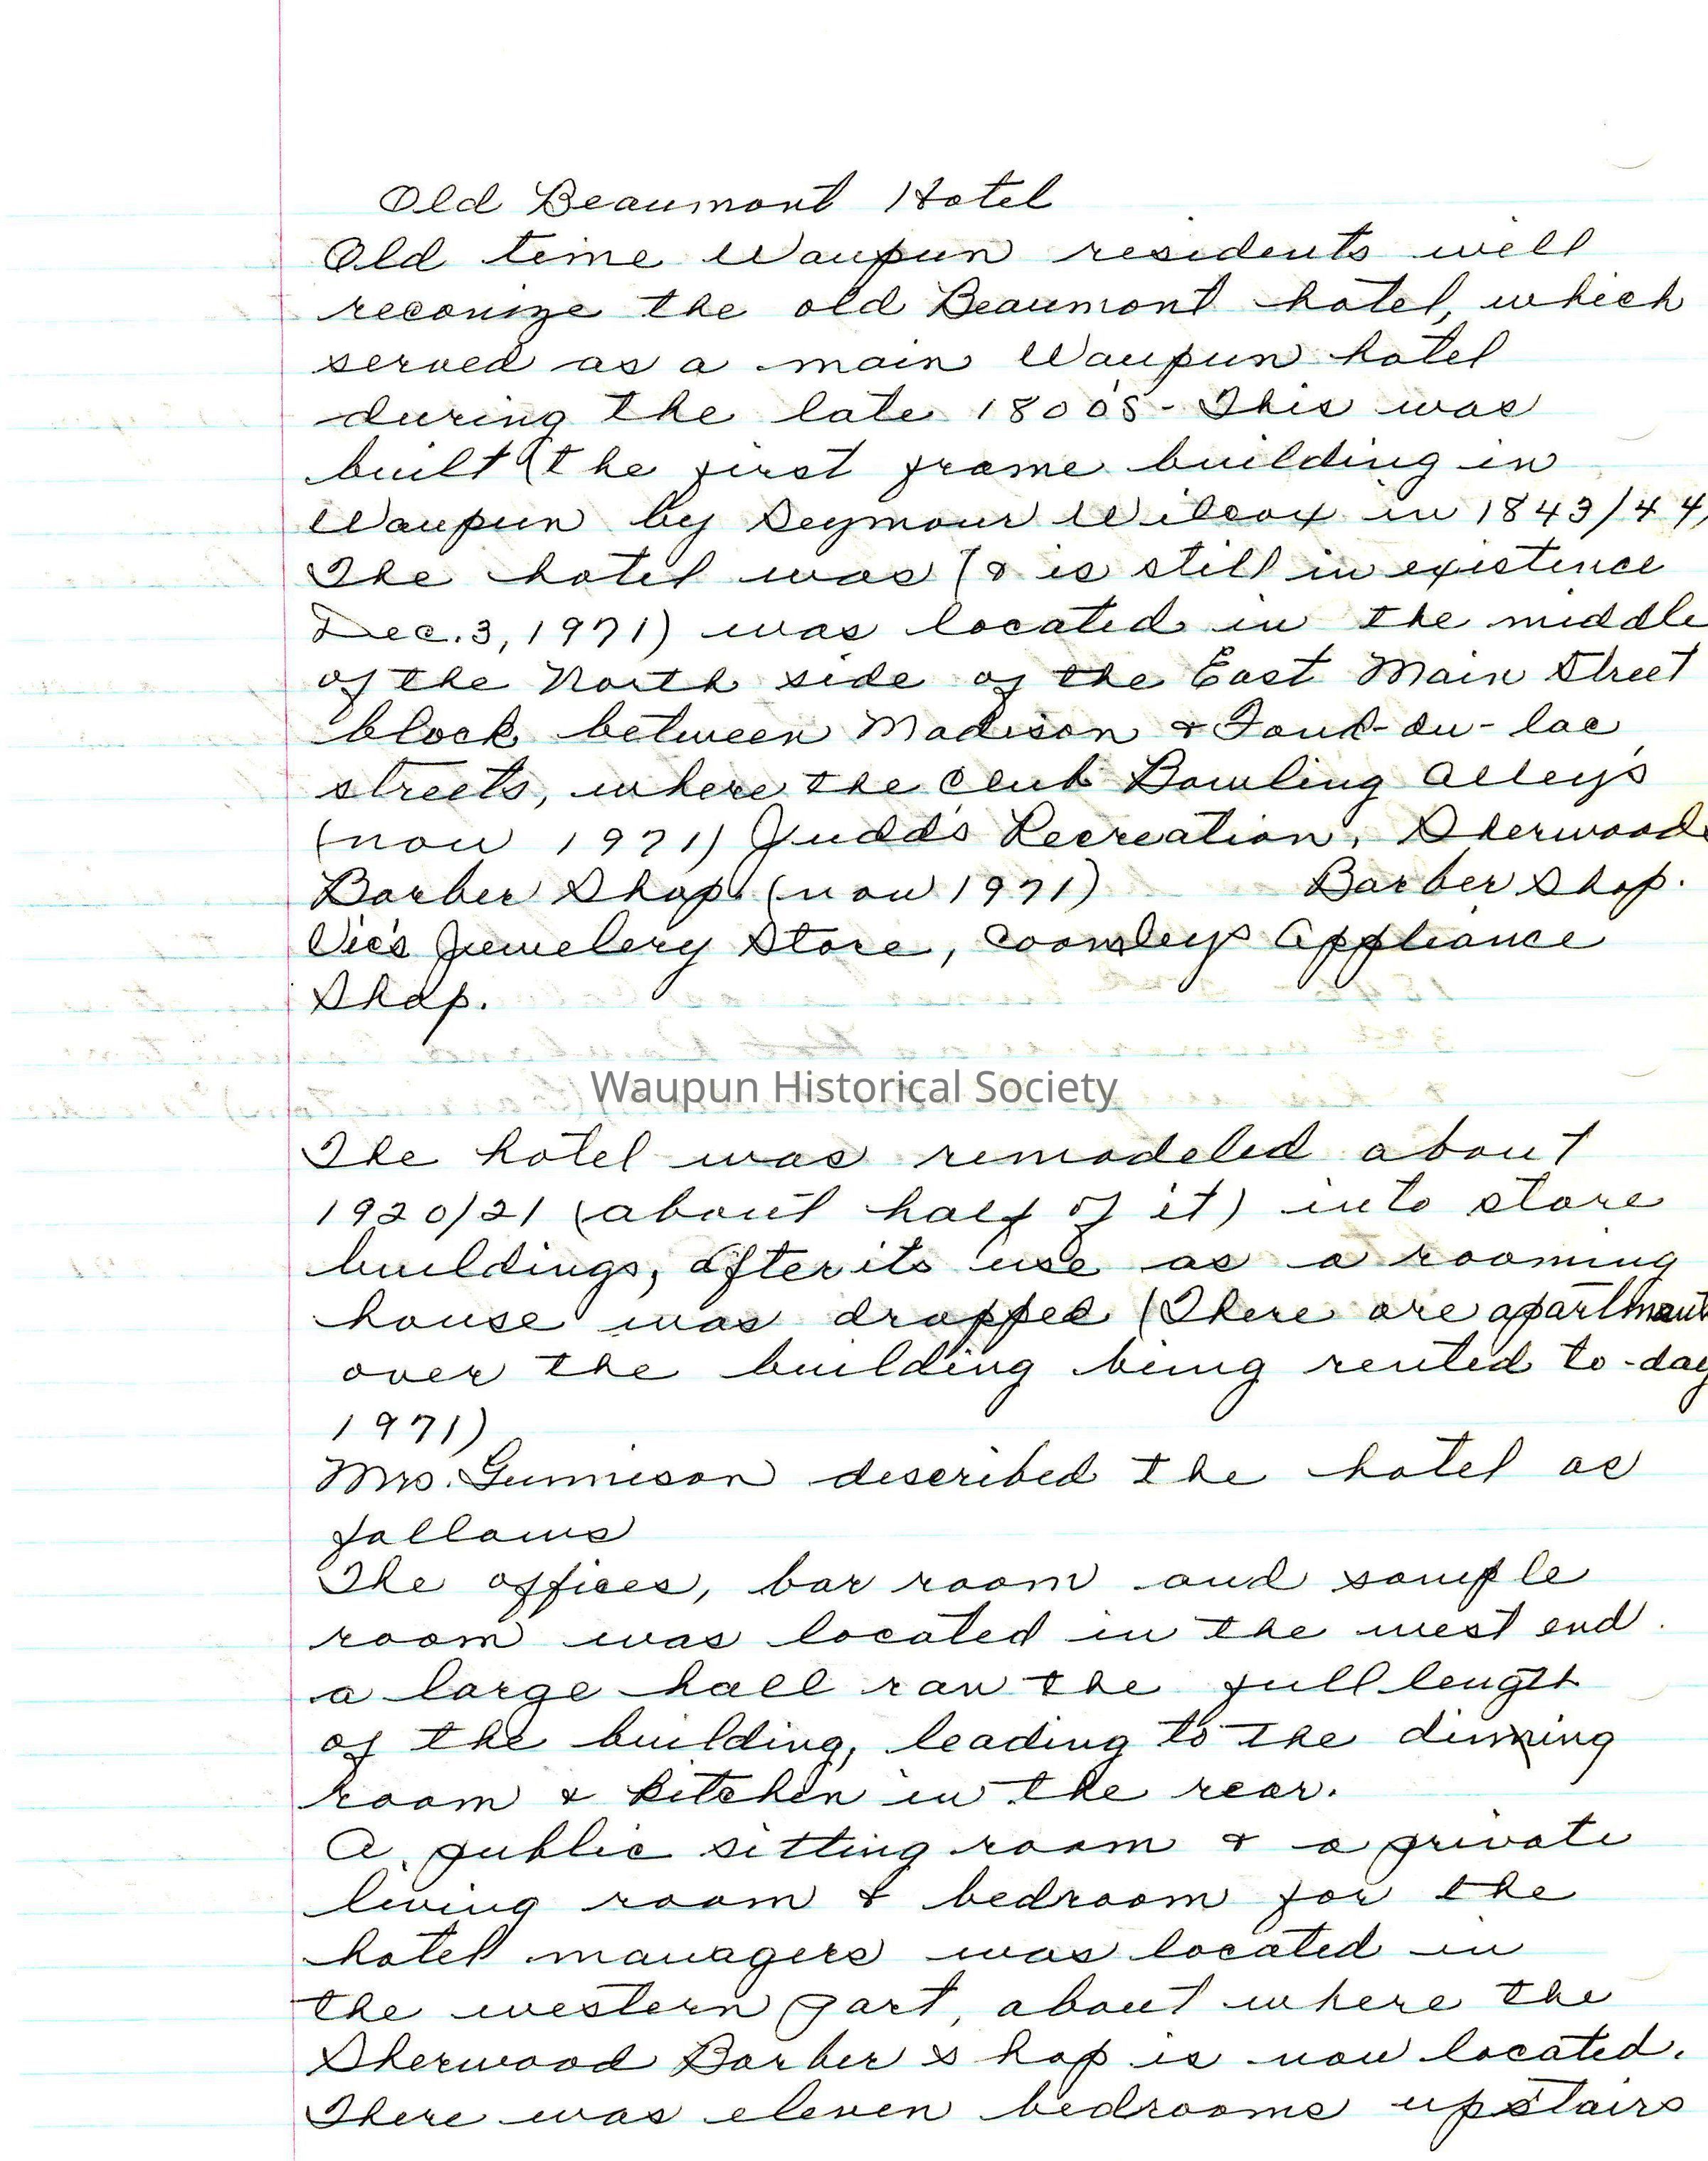 Old Beaumont Hotel
Old time Waupun residents will
reconize the old Beaumont hotel, which
served as a main Waupun hotel
during the late 1800's - This was
built (the first frame building in
Waupun by Seymour Wilcox in 1843/44,
The hotel was (& is still in existence
Dec. 3, 1971) was located in the middle
of the North side of the East Main Street
block between Madison & Fond-du-lac
streets, where the Club Bowling Alleys
(now 1971) Judd's Recreation, Sherwoods
Barber Shop (now 1971) Barber Shop.
Vic's Jewelery Store, Coomleys Appliance
Shop.
Waupun Historical Society
The hotel was remodeled about
1920/21 (about half of it) into store
buildings, after its use as a rooming
house was dropped (There are apartment
over the building being rented to-day
1971)
Mrs. Gunnison described the hotel as
follows
The offices, bar room and sample
room was located in the west end.
a large hall ran the full length
of the building, leading to the dinning
room & kitchen in the rear.
A public sitting room & a private
living room & bedroom for the
hotel managers was located in
the western part, about where the
Sherwood Barber shop is now located.
There was eleven bedrooms upstairs